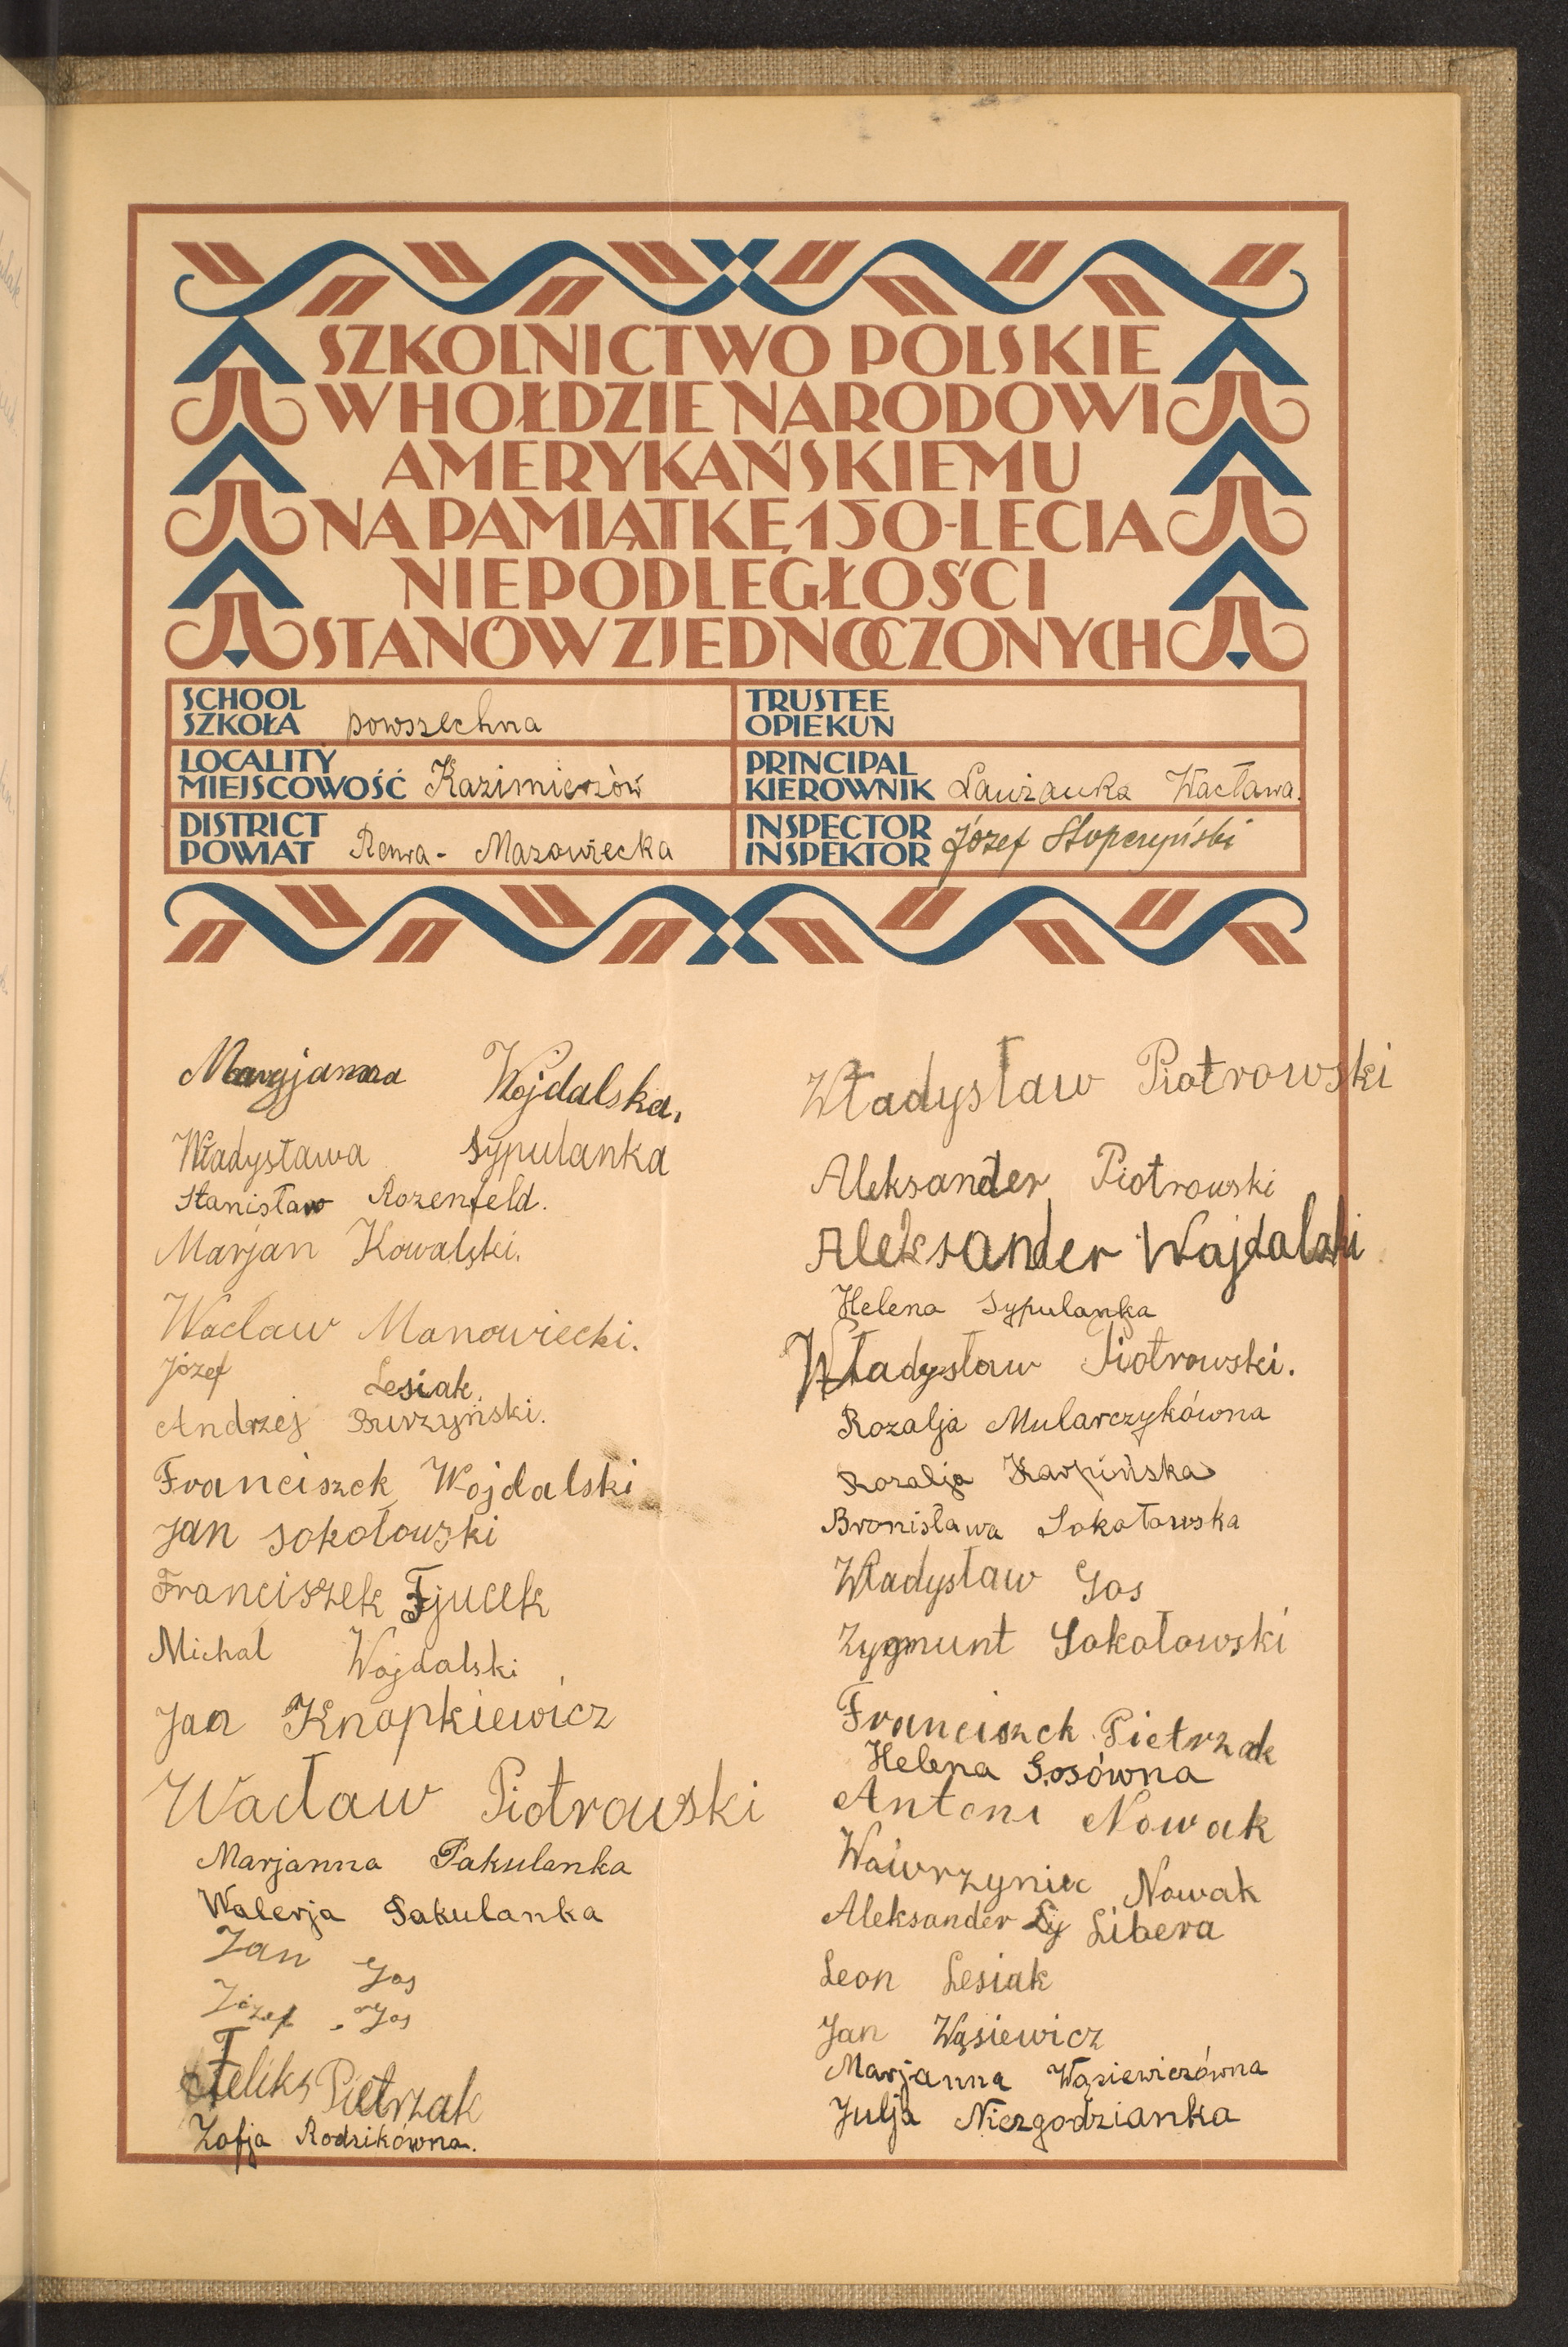 SZKOLNICTWO POLSKIE
W HOŁDZIE NARODOWI
AMERYKAŃSKIEMU
NA PAMIĄTKĘ 150-LECIA
NIEPODLEGŁOŚCI
STANÓW ZJEDNOCZONYCH
SCHOOL
SZKOŁA powszechna
TRUSTEE
OPIEKUN
LOCALITY
MIEJSCOWOŚĆ Kazimierzów
PRINCIPAL
KIEROWNIK Wacława.
DISTRICT
POWIAT Rawa - Mazowiecka
INSPECTOR
INSPEKTOR Józef Stopczyński
Maryjanna Wojdalska.
Władysława Sypulanka
Stanisław Rozenfeld.
Marjan Kowalski.
Wacław Manowiecki.
Józef Lesiak.
Andrzej Burzyński.
Franciszek Wojdalski
Jan Sokołowski
Franciszek Fjucek
Michał Wojdalski
Jan Knapkiewicz
Wacław Piotrowski
Marjanna Pakulanka
Walerja Pakulanka
Jan Gos
Józef Gos
Feliks Pietrzak
Zofja Rodzikówna.
Władysław Piotrowski
Aleksander Piotrowski
Aleksander Wajdalski
Helena Sypulanka
Władysław Piotrowski.
Rozalja Mularczykówna
Rozalja Karpińska
Bronisława Sokołowska
Władysław Gos
Zygmunt Sokołowski
Franciszek Pietrzak
Helena Gosówna
Antoni Nowak
Wawrzyniec Nowak
Aleksander Libera
Leon Lesiak
Jan Wąsiewicz
Marjanna Wąsiewiczówna
Julja Niezgodzianka